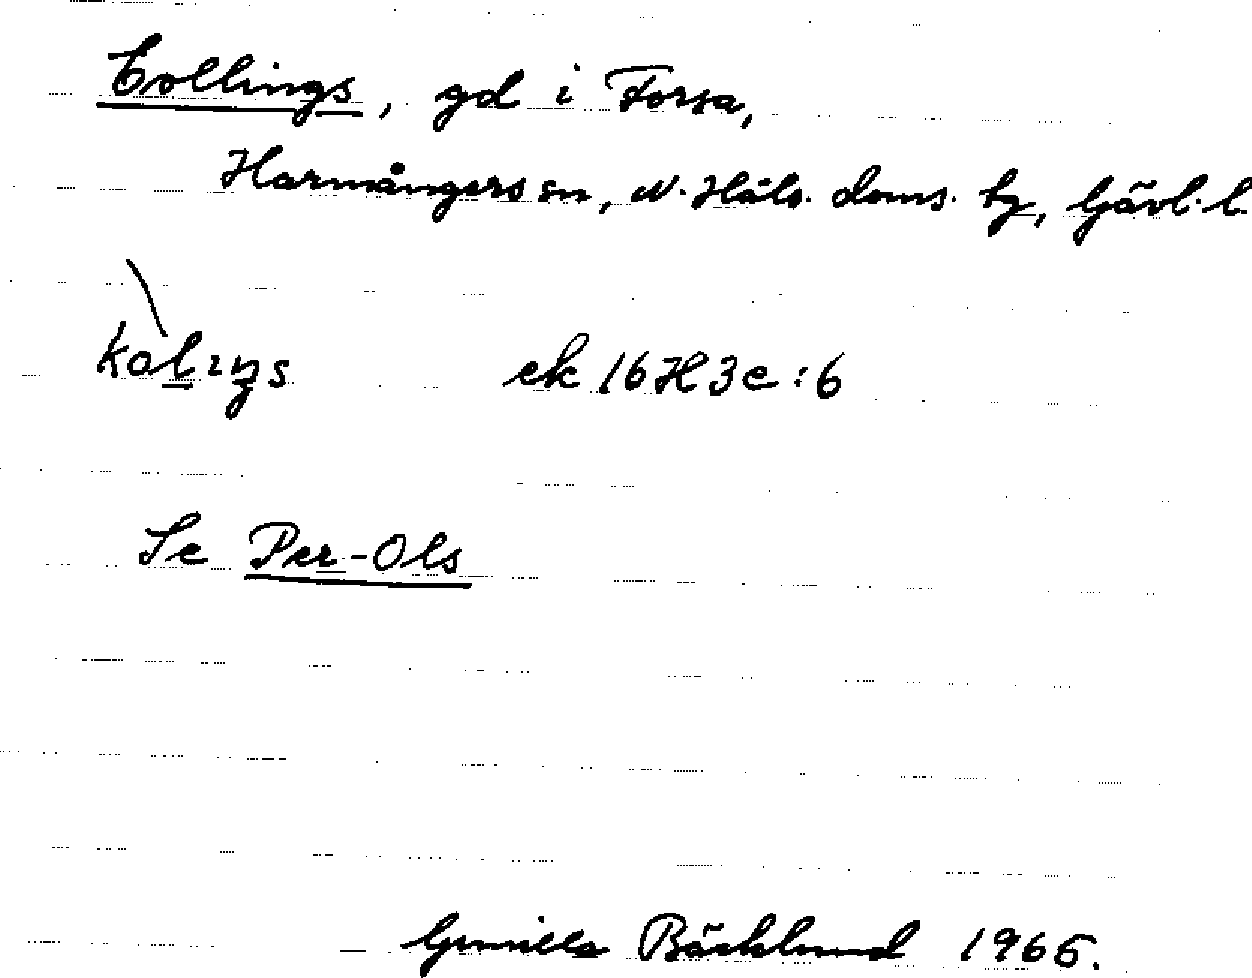 Collings, gd i Forsa,
Harmångers sn, N. Häls. doms. tg, Gävl. l.
kòlıŋs ek 16H3e:6
Se Per-Ols
Gunilla Bäcklund 1966.